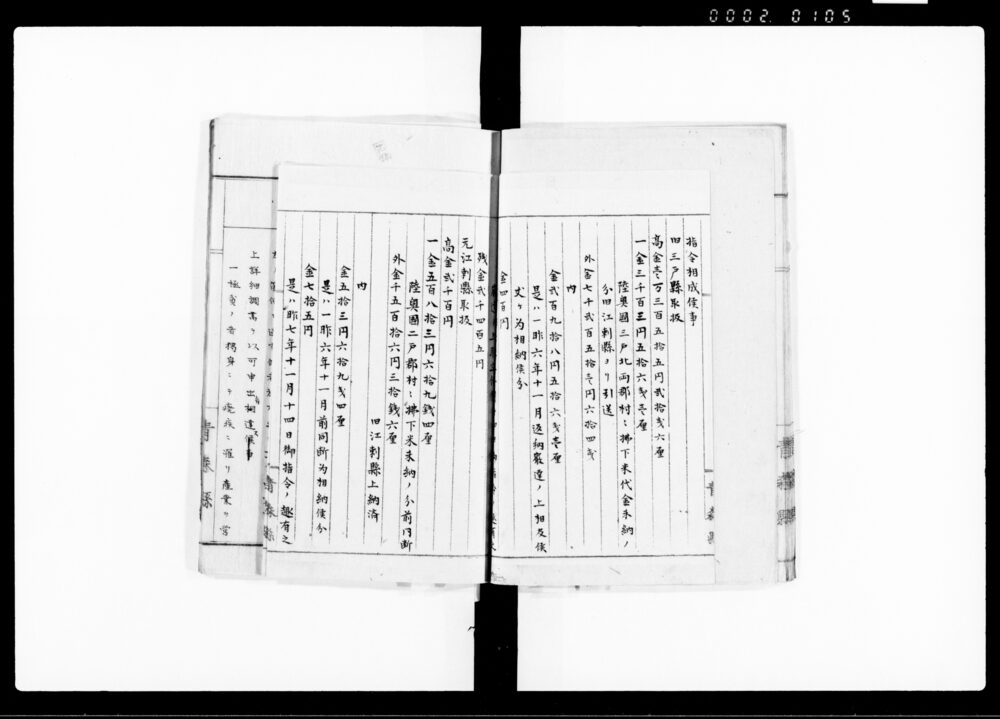 0002 0105
指令相成候事
旧三戸縣取扱
高金壱万三百五拾五円弐拾戋六厘
一金三千百三円五拾六戋壱厘
陸奥國三戸北両郡村々拂下米代金未納ノ
分旧江刺縣ヨリ引送
外金七千弐百五拾壱円六拾四戋
内
金弐百九拾八円五拾六戋壱厘
是ハ一昨六年十一月返納嚴達ノ上相及候
丈ケ為相納候分
金四百円
残金弐千四百五円
元江刺縣取扱
高金弐千百円
一金五百八拾三円六拾九錢四厘
陸奥國二戸郡村々拂下米未納ノ分前同断
外金千五百拾六円三拾錢六厘
旧江刺縣上納済
内
金五拾三円六拾九戋四厘
是ハ一昨六年十一月前同断為相納候分
金七拾五円
是ハ昨七年十一月十四日御指令ノ趣有之
上詳細調書ヲ以可申出相達候事
一極貧ノ者獨身ニテ癈疾ニ罹リ産業ヲ営
青森縣